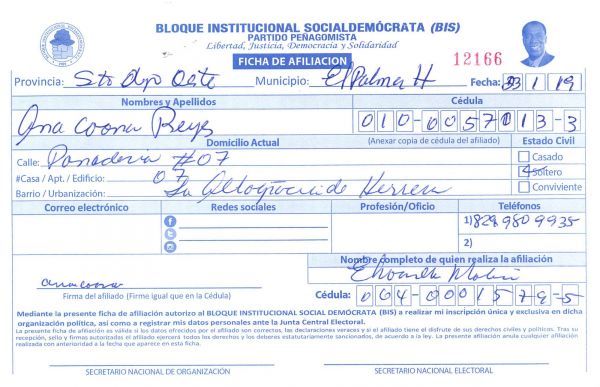 BLOQUE INSTITUCIONAL SOCIALDEMÓCRATA (BIS)
PARTIDO PEÑAGOMISTA
Libertad, Justicia, Democracia y Solidaridad
FICHA DE AFILIACION
12166
Provincia: Sto Dgo Oeste Municipio: El Palmar H Fecha: 23/1/19
Nombres y Apellidos Cédula
Ana Coona Reyes 010-0057013-3
Domicilio Actual (Anexar copia de cédula del afiliado) Estado Civil
Calle: Panaderia #07 Casado
#Casa / Apt. / Edificio: 07 Soltero
Barrio / Urbanización: La Altagracia de Herrera Conviviente
Correo electrónico Redes sociales Profesión/Oficio Teléfonos
1) 829 980 9935
2)
Nombre completo de quien realiza la afiliación
ana coona
Firma del afiliado (Firme igual que en la Cédula) Cédula: 064-0001579-5
Mediante la presente ficha de afiliación autorizo al BLOQUE INSTITUCIONAL SOCIAL DEMÓCRATA (BIS) a realizar mi inscripción única y exclusiva en dicha
organización política, así como a registrar mis datos personales ante la Junta Central Electoral.
La presente ficha de afiliación es válida si los datos ofrecidos por el afiliado son correctos, las declaraciones veraces y si el afiliado tiene el disfrute de sus derechos civiles y políticos. Tras su
recepción, sello y firmas autorizadas el afiliado ejercerá todos los derechos y los deberes estatutariamente sancionados, de acuerdo a la ley. La presente afiliación anula cualquier afiliación
realizada con anterioridad a la fecha que aparece en esta ficha.
SECRETARIO NACIONAL DE ORGANIZACIÓN SECRETARIO NACIONAL ELECTORAL